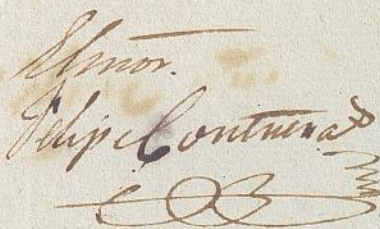 Elmor.
Felipe Contreras